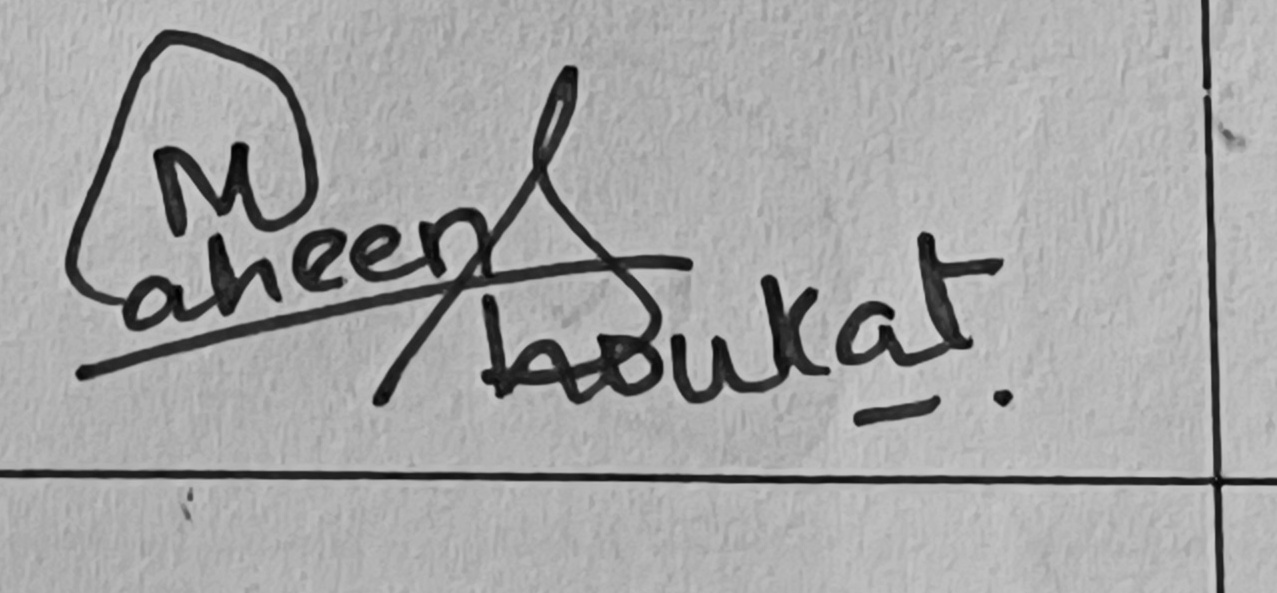 Maheen Shoukat.